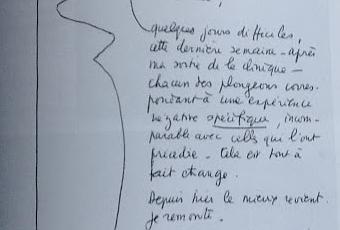 quelques jours difficiles,
cette dernière semaine - après
ma sortie de la clinique -
chacun des plongeons corres-
pondant à une expérience
négative spécifique, incom-
parable avec celles qui l'ont
précédée - Cela est tout à
fait changé.
Depuis hier le mieux revient.
Je remonte.